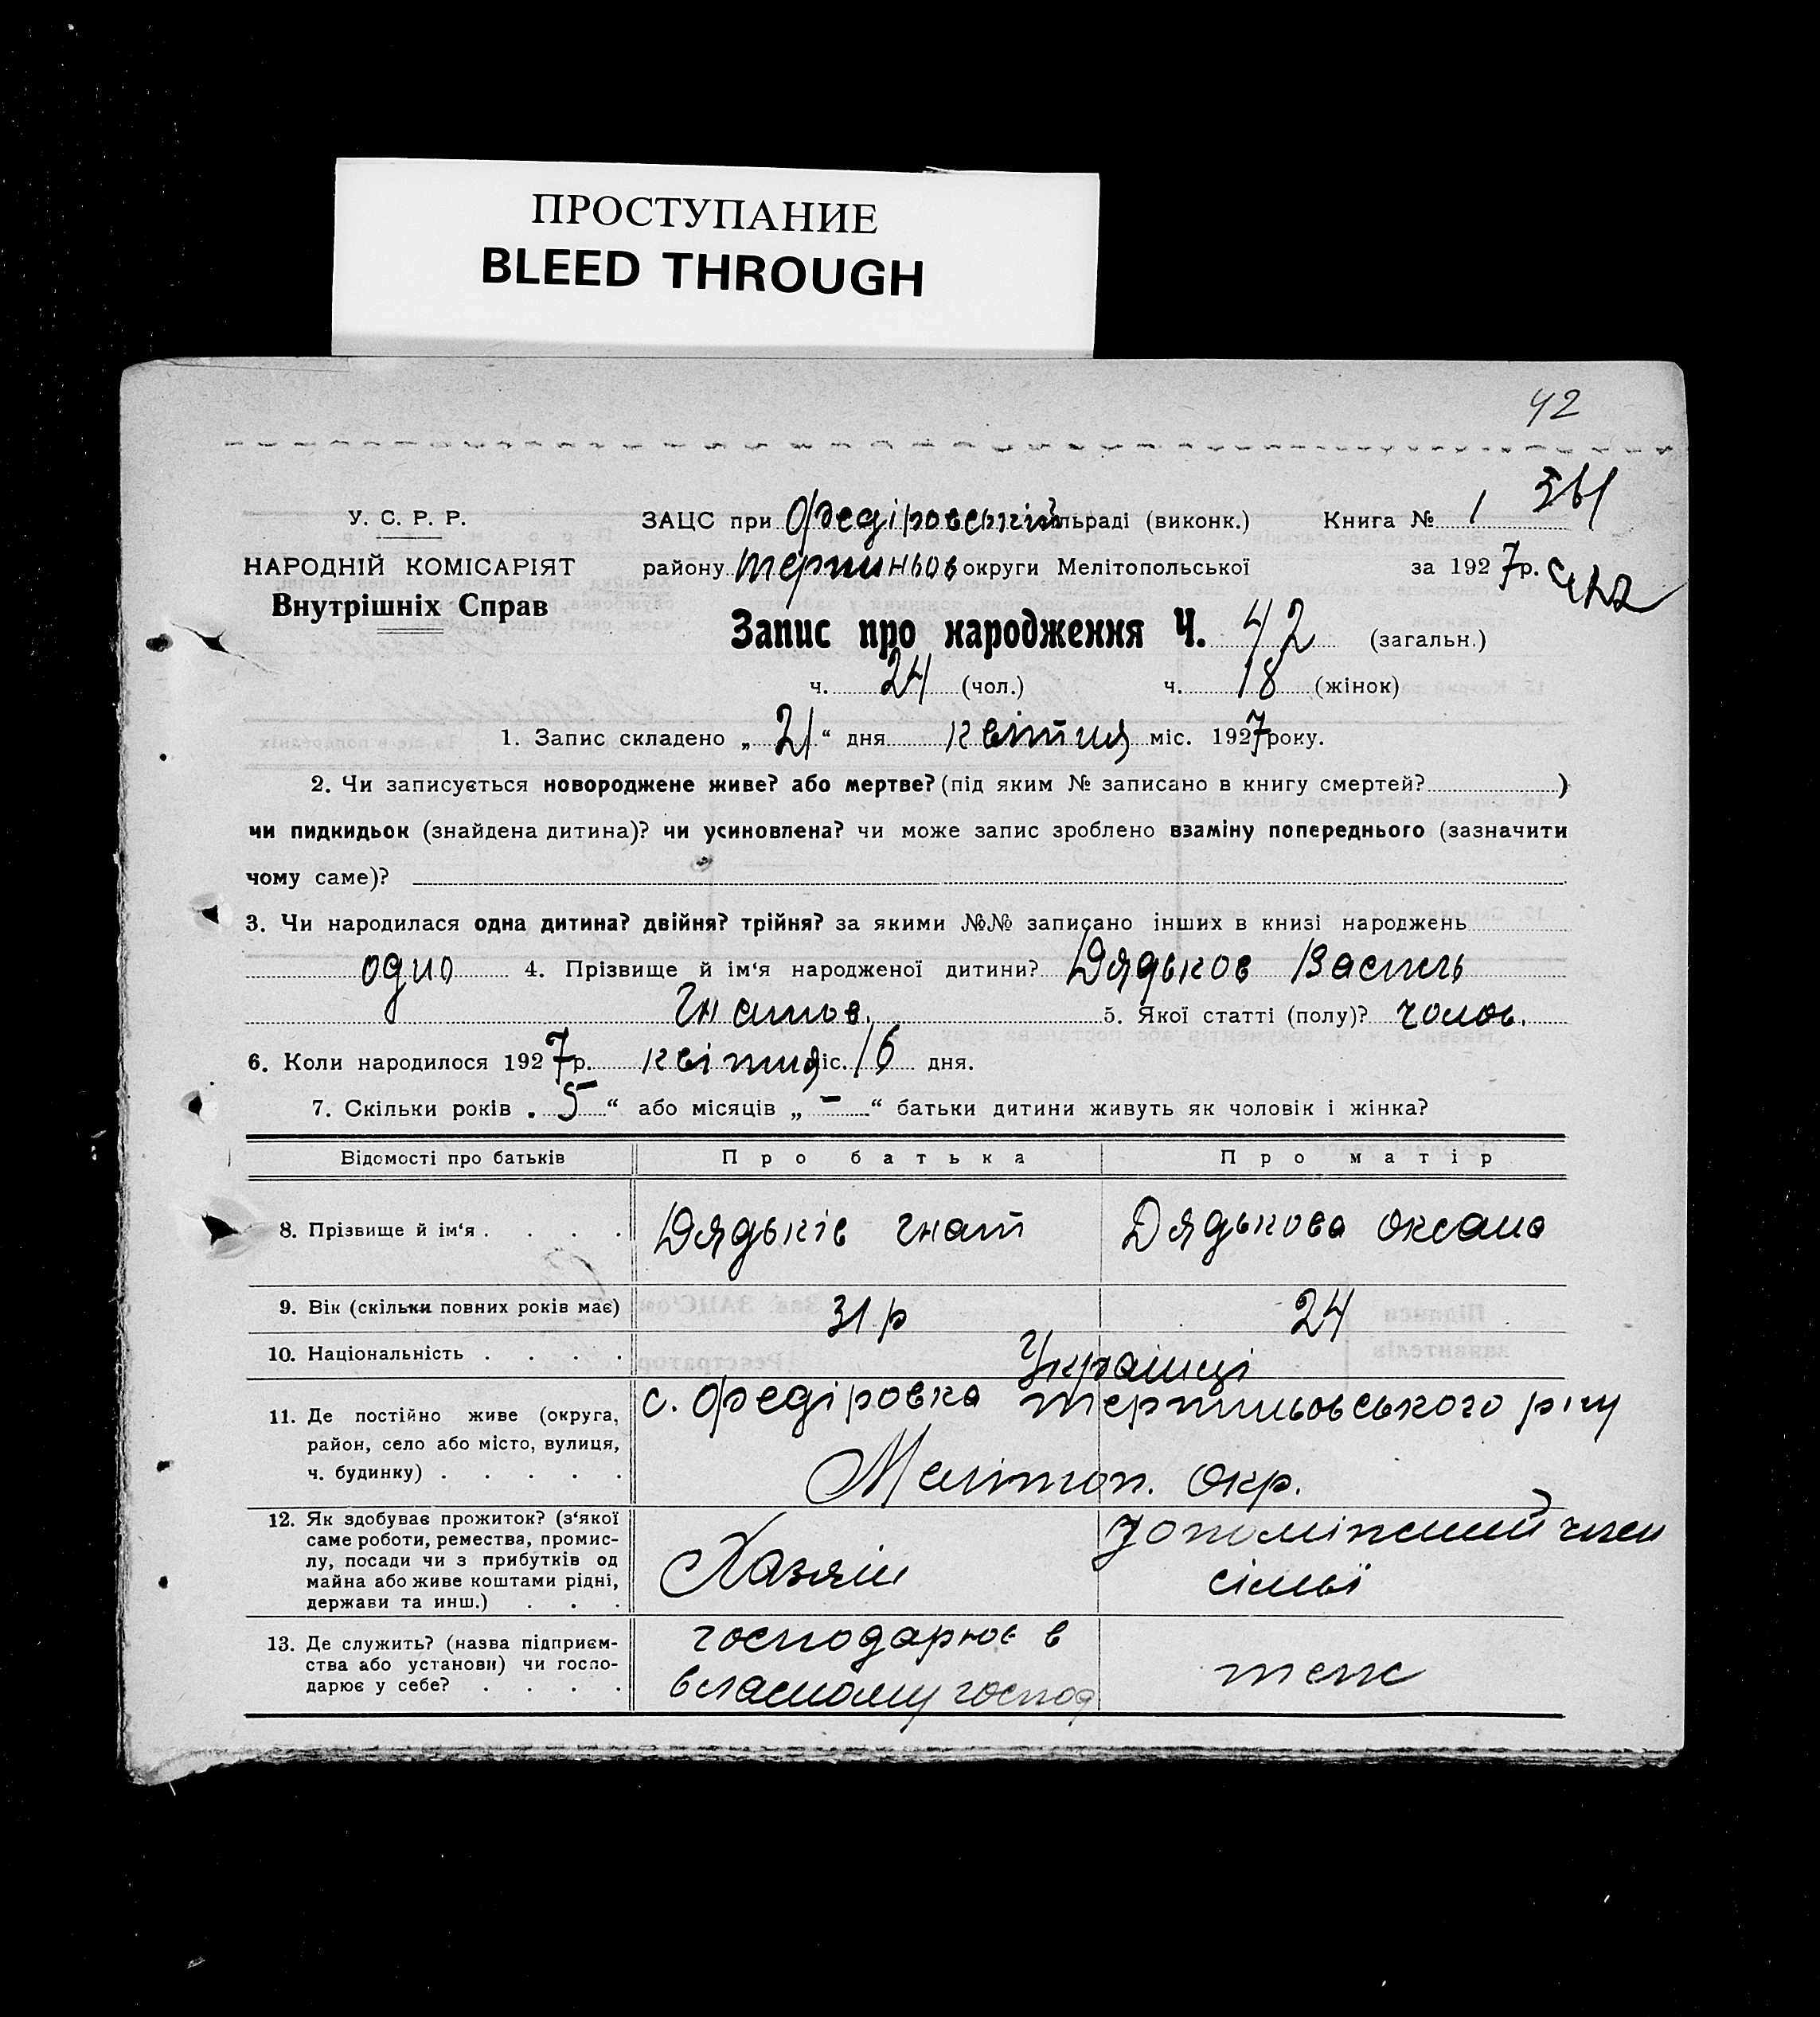 ПРОСТУПАНИЕ
BLEED THROUGH
42
У. С. Р. Р.
НАРОДНІЙ КОМІСАРІЯТ
Внутрішніх Справ
ЗАЦС при Федіровській сільраді (виконк.) Книга № 1
району терпиньов округи Мелітопольської за 1927р.
Запис про народження Ч. 42 (загальн.)
ч. 24 (чол.) ч. 18 (жінок)
1. Запис складено „ 21 “ дня квітня міс. 1927 року.
2. Чи записується новороджене живе? або мертве? (під яким № записано в книгу смертей? )
чи пидкидьок (знайдена дитина)? чи усиновлена? чи може запис зроблено взаміну попереднього (зазначити
чому саме)?
3. Чи народилася одна дитина? двійня? трійня? за якими №№ записано інших в книзі народжень
одно 4. Прізвище й ім‘я народженої дитини? Дядьков Василь
Гнатов. 5. Якої статті (полу)? чолов.
6. Коли народилося 1927 р. квітня міс. 16 дня.
7. Скільки років „ 5 “ або місяців „ - “ батьки дитини живуть як чоловік і жінка?
Відомості про батьків Про батька Про матір
8. Прізвище й ім‘я . . . . Дядьків Гнат Дядькова Оксана
9. Вік (скільки повних років має) 31 р 24
10. Національність . . . . Українці
11. Де постійно живе (округа, район, село або місто, вулиця, ч. будинку) . . . . . с. Федіровка терпиньовського р-ну
Меліт оп. Окр.
12. Як здобуває прожиток? (з‘якої саме роботи, ремества, промислу, посади чи з прибутків од майна або живе коштами рідні, держави та инш.) . . . Хазяїн допоміжний член
сімьї
13. Де служить? (назва підприємства або установи) чи господарює у себе? . . . . господарює в
власному господ теж